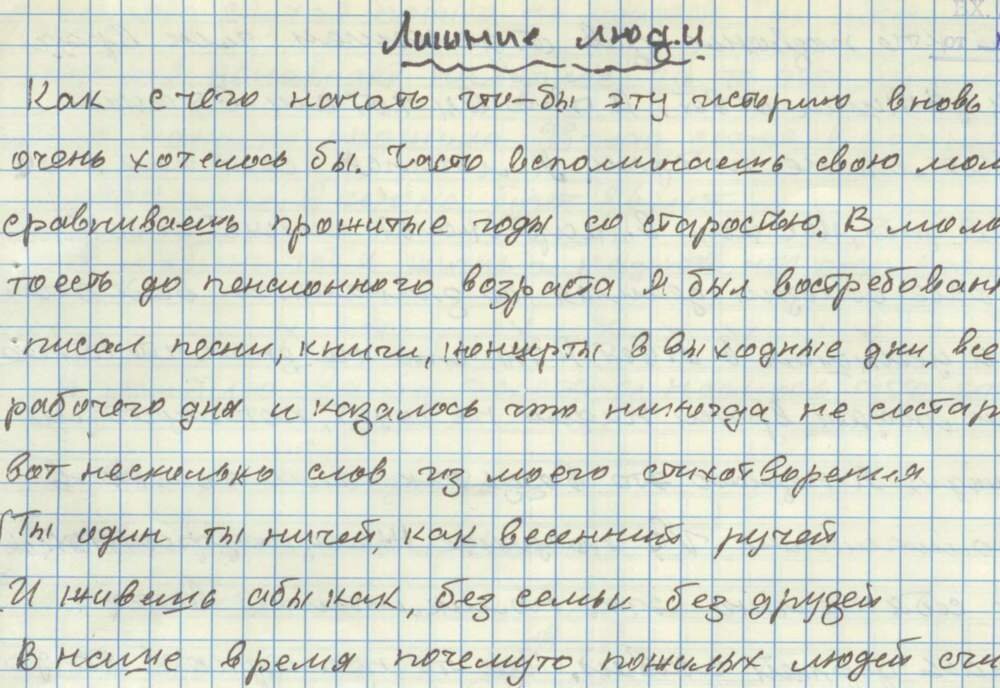 Лишние люди
Как с чего начать что-бы эту историю вновь
очень хотелось бы. Часто вспоминаешь свою мол
сравниваешь прожитые годы со старостью. В моло
тоесть до пенсионного возраста я был востребован
писал песни, книги, концерты в выходные дни, все
рабочего дня и казалось что никогда не состар
вот несколько слов из моего стихотворения
Ты один ты ничей, как весенний ручей
И живешь абы как, без семьи без друзей
В наше время почемуто пожилых людей счи